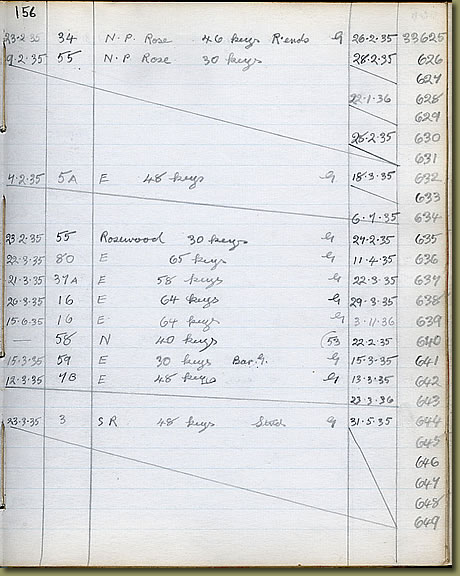 156
23·2·35 34 N.P. Rose 46 keys R·ends G 26·2·35 33625
9·2·35 55 N.P Rose 30 keys 28·2·35 626
627
22·1·36 628
629
25·2·35 630
631
4·2·35 5A E 48 keys G 18·3·35 632
633
6·7·35 634
23·2·35 55 Rosewood 30 keys G 27·2·35 635
22·3·35 80 E 65 keys G 11·4·35 636
21·3·35 37A E 58 keys G 22·3·35 637
26·3·35 16 E 64 keys G 29·3·35 638
15·6·35 16 E 64 keys G 3·11·36 639
— 58 N 40 keys (53 22·2·35 640
15·3·35 59 E 30 keys Bar.G. G 15·3·35 641
12·3·35 7B E 48 keys G 13·3·35 642
23·3·36 643
23·3·35 3 S R 48 keys G 31·5·35 644
645
646
647
648
649